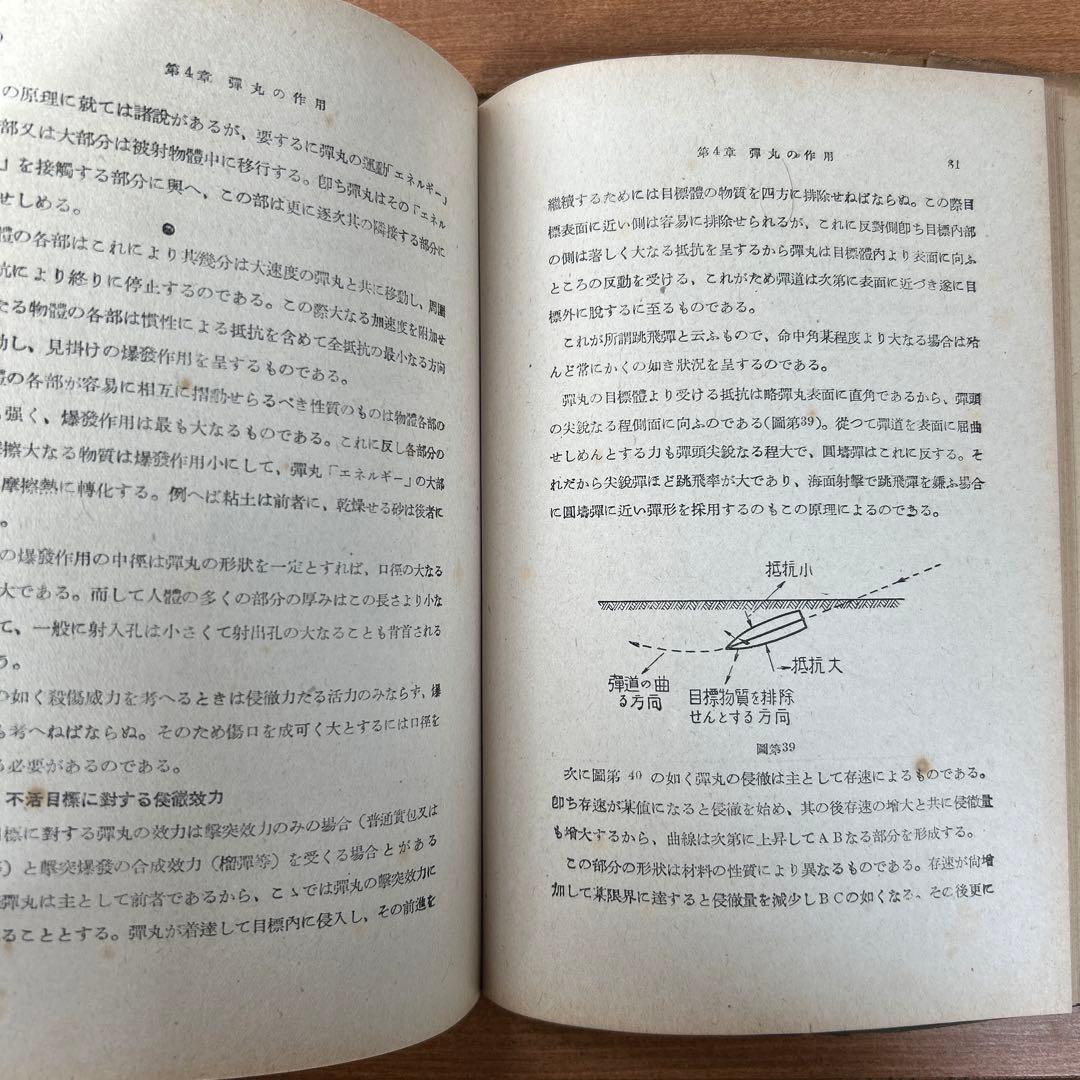 第4章 彈丸の作用
の原理に就ては諸說があるが、要するに彈丸の運動「エネルギー」
部又は大部分は被射物體中に移行する。卽ち彈丸はその「エネル
」を接觸する部分に與へ、この部は更に逐次其の隣接する部分に
せしめる。
體の各部はこれにより其幾分は大速度の彈丸と共に移動し、周圍
抗により終りに停止するのである。この際大なる加速度を附加せ
たる物體の各部は慣性による抵抗を含めて全抵抗の最小なる方向
動し、見掛けの爆發作用を呈するものである。
體の各部が容易に相互に摺動せらるべき性質のものは物體各部の
も强く、爆發作用は最も大なるものである。これに反し各部分の
摩擦大なる物質は爆發作用小にして、彈丸「エネルギー」の大部
摩擦熱に轉化する。例へば粘土は前者に、乾燥せる砂は後者に
。
の爆發作用の中徑は彈丸の形狀を一定とすれば、口徑の大なる
大である。而して人體の多くの部分の厚みはこの長さより小な
て、一般に射入孔は小さくて射出孔の大なることも背首される
う。
の如く殺傷威力を考へるときは侵徹力たる活力のみならず、爆
も考へねばならぬ。そのため傷口を成可く大とするには口徑を
る必要があるのである。
不活目標に對する侵徹效力
目標に對する彈丸の效力は擊突效力のみの場合（普通實包又は
等）と擊突爆發の合成效力（榴彈等）を受くる場合とがある
彈丸は主として前者であるから、こゝでは彈丸の擊突效力に
ることとする。彈丸が着達して目標內に侵入し、その前進を
第4章 彈丸の作用 81
繼續するためには目標體の物質を四方に排除せねばならぬ。この際目
標表面に近い側は容易に排除せられるが、これに反對側卽ち目標內部
の側は著しく大なる抵抗を呈するから彈丸は目標體內より表面に向ふ
ところの反動を受ける、これがため彈道は次第に表面に近づき遂に目
標外に脫するに至るものである。
これが所謂跳飛彈と云ふもので、命中角某程度より大なる場合は殆
んど常にかくの如き狀況を呈するのである。
彈丸の目標體より受ける抵抗は略彈丸表面に直角であるから、彈頭
の尖銳なる程側面に向ふのである（圖第39）。從つて彈道を表面に屈曲
せしめんとする力も彈頭尖銳なる程大で、圓墻彈はこれに反する。そ
れだから尖銳彈ほど跳飛率が大であり、海面射擊で跳飛彈を嫌ふ場合
に圓墻彈に近い彈形を採用するのもこの原理によるのである。
抵抗小
抵抗大
彈道の曲
る方向
目標物質を排除
せんとする方向
圖第39
次に圖第 40 の如く彈丸の侵徹は主として存速によるものである。
卽ち存速が某値になると侵徹を始め、其の後存速の增大と共に侵徹量
も增大するから、曲線は次第に上昇してＡＢなる部分を形成する。
この部分の形狀は材料の性質により異なるものである。存速が尙增
加して某限界に達すると侵徹量を減少しＢＣの如くなる、その後更に